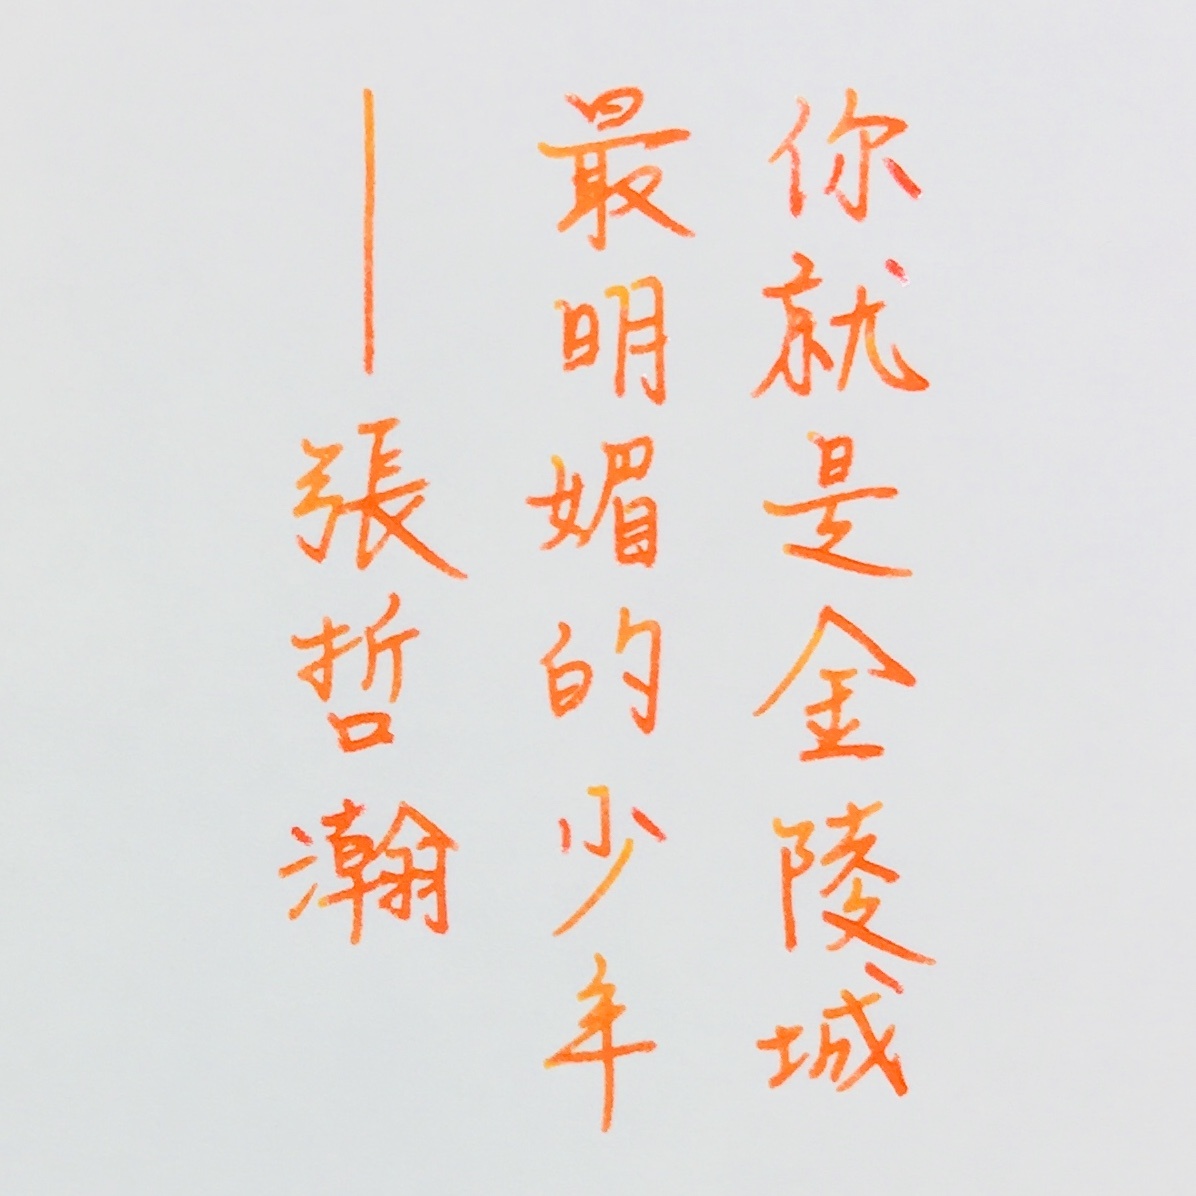 你就是金陵城
最明媚的少年
——張哲瀚